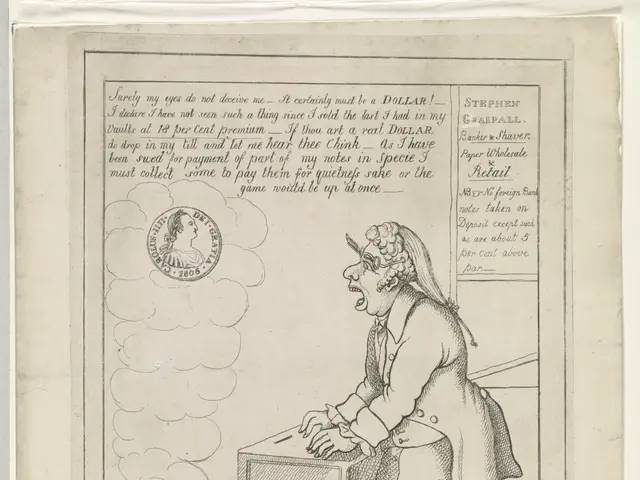 Surely my eyes do not deceive me — It certainly must be a DOLLAR! —
I declare I have not seen such a thing since I sold the last I had in my
Vaults at 18 per Cent premium — If thou art a real DOLLAR
do drop in my till and let me hear thee Chink — As I have
been sued for payment of part of my notes in Specie I
must collect some to pay them for quietness sake or the
game would be up at once —
CAROLUS · IIII · DEI · GRATIA · 1806 ·
STEPHEN
GRASPALL.
Banker & Shaver.
Paper Wholesale
&
Retail
NB No foreign Bank
notes taken on
Deposit except such
as are about 5
per cent above
par —